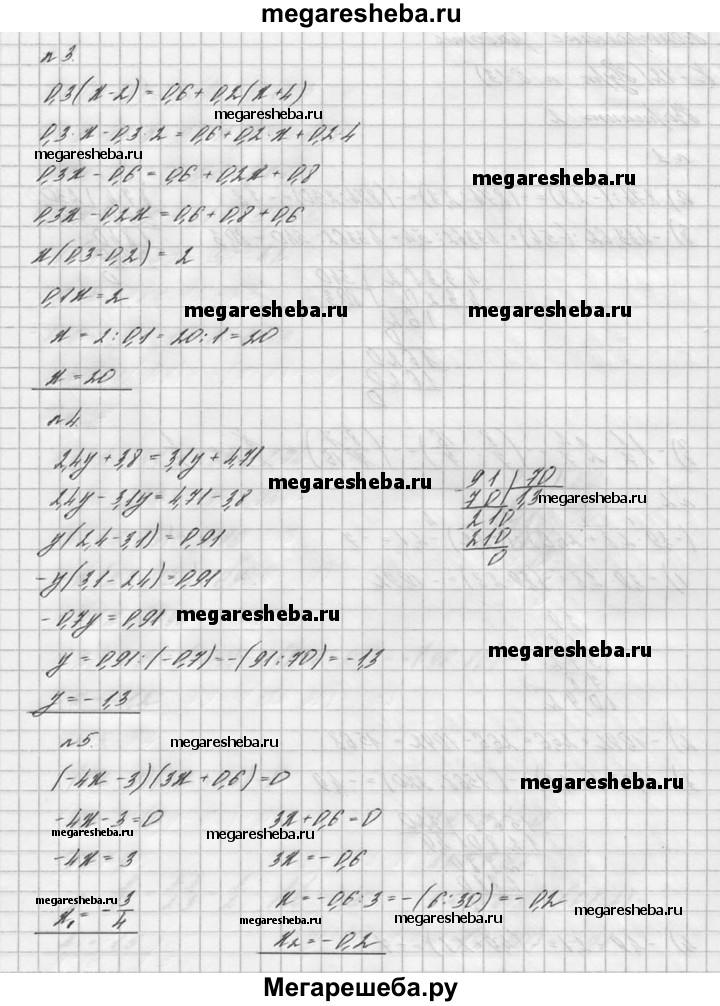 megaresheba.ru
n 3.
0,3(x-2) = 0,6 + 0,2(x+4)
megaresheba.ru
0,3·x - 0,3·2 = 0,6+0,2·x+0,2·4
megaresheba.ru
0,3x - 0,6 = 0,6 + 0,2x + 0,8
megaresheba.ru
0,3x - 0,2x = 0,6 + 0,8 + 0,6
x(0,3-0,2) = 2
0,1x = 2
megaresheba.ru megaresheba.ru
x = 2:0,1 = 20:1 = 20
x = 20
n 4.
2,4y + 3,8 = 3,1y + 4,71
megaresheba.ru
91 | 70
2,4y - 3,1y = 4,71 - 3,8
70 | 1,3
megaresheba.ru
210
y(2,4-3,1) = 0,91
210
0
-y(3,1-2,4) = 0,91
-0,7y = 0,91
megaresheba.ru
y = 0,91:(-0,7) = -(91:70) = -1,3
megaresheba.ru
y = -1,3
n 5.
megaresheba.ru
(-4x - 3)(3x + 0,6) = 0
megaresheba.ru
-4x - 3 = 0 3x + 0,6 = 0
megaresheba.ru megaresheba.ru
-4x = 3 3x = -0,6
megaresheba.ru
x₁ = -3/4 x = -0,6:3 = -(6:30) = -0,2
megaresheba.ru megaresheba.ru megaresheba.ru
x₂ = -0,2
Мегарешеба.ру